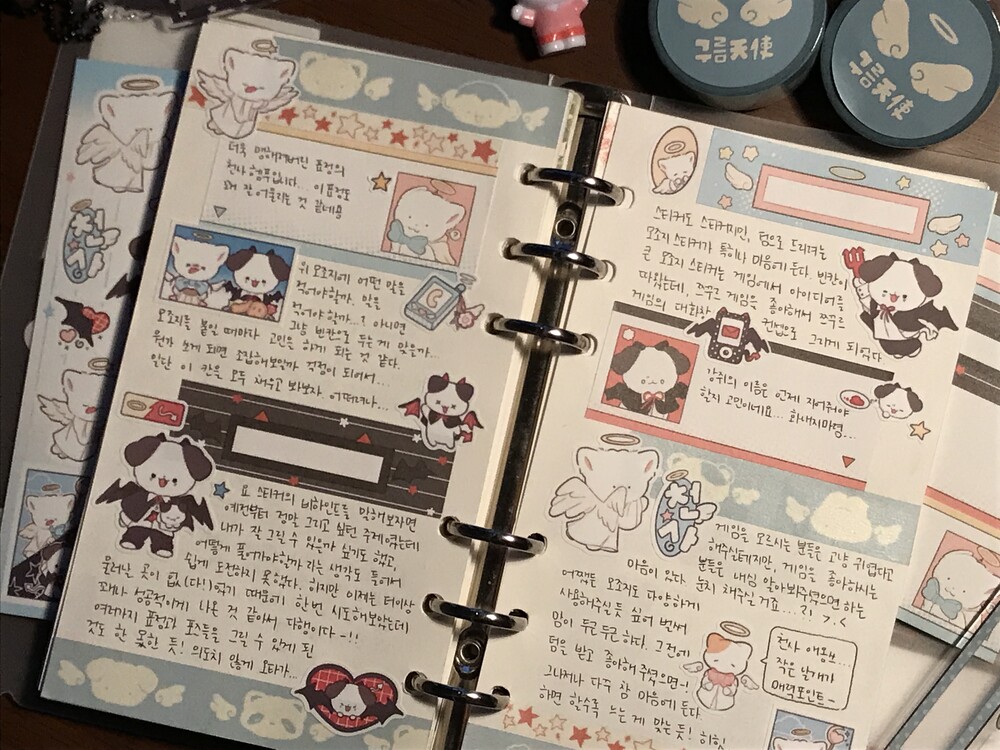 더욱 맹해져버린 표정의
천사 햄쮸입니다... 이 표정도
꽤 잘 어울리는 것 같네용
위 모조지에 어떤 말을
적어야할까. 말을
적어야 할까...? 아니면
그냥 빈칸으로 두는 게 맞을까...
모조지들 붙일 때마다 고민을 하게 되는 것 같다.
뭔가 쓰게 되면 조잡해보일까 걱정이 되어서...
일단 이 칸을 모두 채우고 봐보자. 어떠려나...
요 스티커의 비하인드를 말해보자면
예전부터 정말 그리고 싶던 주제였는데
내가 잘 그릴 수 있을까 싶기도 했고,
어떻게 풀어가야할까 라는 생각도 들어서
쉽게 도전하지 못했다. 하지만 이제는 더이상
물러날 곳이 없(다!)었기 때문에 한번 시도해보았는데
꽤나 성공적이게 나온 것 같아서 다행이다-!!
여러가지 표정과 포즈들을 그릴 수 있게 된
것도 한 몫한 듯! 의도치 않게 오타가...
구름天使
구름天使
스티커도 스티커지만, 덤으로 드리는
모조지 스티커가 특히나 마음에 든다. 빈칸이
큰 모조지 스티커는 게임에서 아이디어를
따왔는데, 쯔꾸르 게임을 좋아해서 쯔꾸르
게임의 대화창 컨셉으로 그리게 되었다
강쥐의 이름은 언제 지어줘야
할지 고민이네요... 화내지마령...
게임을 모르시는 분들은 그냥 귀엽다고
해주실테지만, 게임을 좋아하시는
분들은 내심 알아봐주셨으면 하는
마음이 있다. 눈치 채주실 거죠...?! >.<
어쨌든 모조지도 다양하게
사용해주실 듯 싶어 벌써
맘이 두근두근 하다. 그전에
덤을 받고 좋아해 주셨으면-!
그나저나 다꾸 참 마음에 든다.
하면 할수록 느는 게 맞는 듯! 히힛
천사 애옹쓰...
작은 날개가
매력포인트~